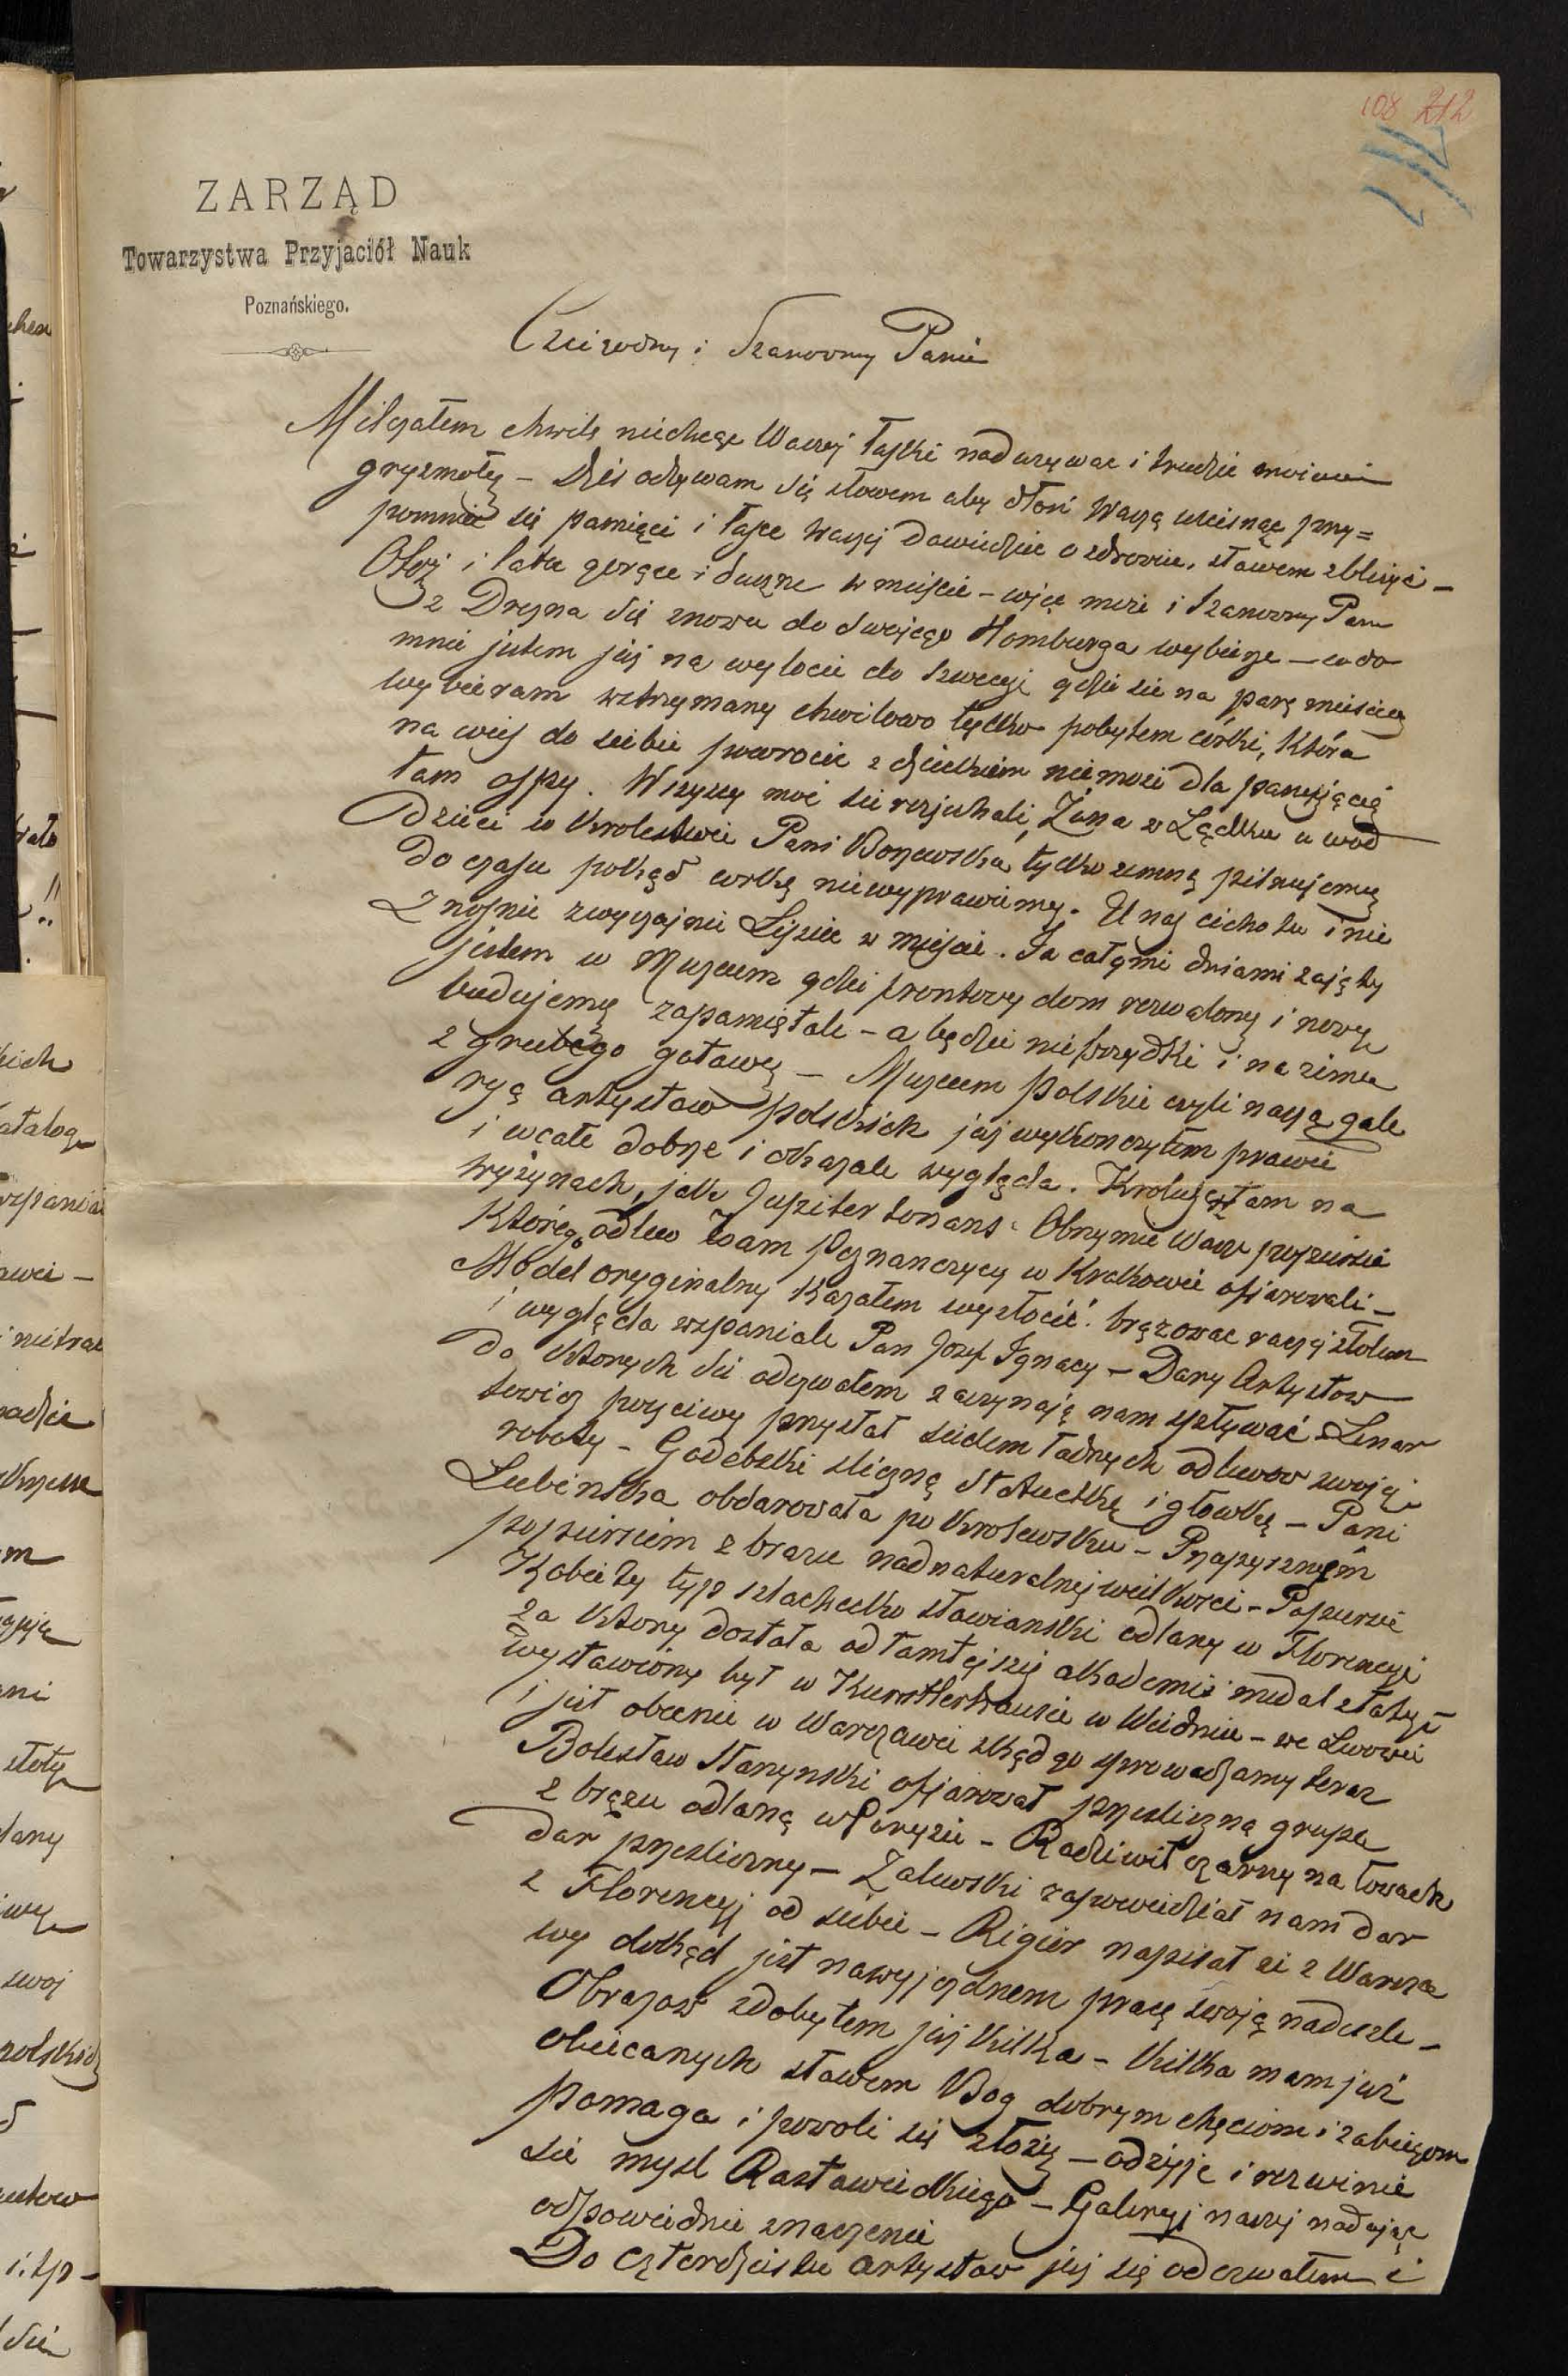 108 212
ZARZĄD
Towarzystwa Przyjaciół Nauk
Poznańskiego.
Czcigodny i Szanowny Panie
Milczałem chwilę niechcąc Waszej łaski nadużywac i trudzić moiemi
gryzmoły – Dziś odzywam się słowem aby dłoń Waszą uscisnąć przy=
pomnieć się pamięci i łasce Waszej dowiedzieć o zdrowie, słowem zbliżyć –
Otoż i lato gorące i duszne w miejscie – więc może i Szanowny Pan
z Drezna się znowu do swojego Homburga wybierze – co do
mnie jestem już na wylocie do Szwecyi gdzie się na parę miesięcy
wybieram wstrzymany chwilowo tylko pobytem córki, która
na wieś do siebie powrocić z dzieckiem niemoże dla panującej
tam ospy. Wszyscy moi się rozjechali, Żona w Lądku u wod
Dzieci w Krolestwie Pani Bojewska tylko zemną pilnujemy
do czasu pokąd corkę niewyprawimy. U nas cicho tu i nie
znosnie zwyczajnie Lipiec w miejscie. Ja całymi dniami zajęty
jestem w Muzeum gdzie frontowy dom rozwalony i nowy
budujemy zapamiętale – a będzie niebrzydki i na zimę
z grubego gotowy – Muzeum polskie czyli naszą gale
ryą artystow polskich już wykonczyłem prawie
i wcale dobrze i okazale wygląda. Kroluje tam na
wyżynach, jak Jupiter tonans Olbrzymie Wasze popiersie
którego odlew Wam Poznanczycy w Krakowie ofiarowali –
Model oryginalny kazałem wyzłocić brązowac raczej złotem
i wygląda wspaniale Pan Jozef Ignacy – Dary Artystow
do ktorych się odzywałem zaczynają nam spływać – Lenar
towicz poczciwy przysłał siedem ładnych odlewow swojej
roboty – Godebski sliczną statuetkę i głowkę – Pani
Lubinska obdarowała po krolewsku – Przepysznym
popiersiem z brązu nadnaturalnej wielkosci – Popiersie
Kobiety typ szlachecko słowianski odlany w Florencyi
za ktory dostała od tamtejszej akademii medal złoty
wystawiony był w Kunstlerhausie w Wiedniu – we Lwowie
i jest obecnie w Warszawie skąd go sprowadzamy teraz
Bolesław Starzynski ofiarował przesliczną grupę
z brązu odlaną w Paryżu – Radziwił czarny na łowach
dar przesliczny – Zalewski zapowiedział nam dar
z Florencyj od siebie – Rigier napisał że z Warsza
wy dokąd jest na wyjezdnem pracę swoją nadeszle –
Obrazow zdobyłem już kilka – kilka mam już
obiecanych słowem Bog dobrym chęciom i zabiegom
pomaga i powoli się złoży – odżyje i rozwinie
się mysl Rastawieckiego – Galeryj naszej nadając
odpowiednie znaczenie
Do czterdziestu artystow już się odezwałem i